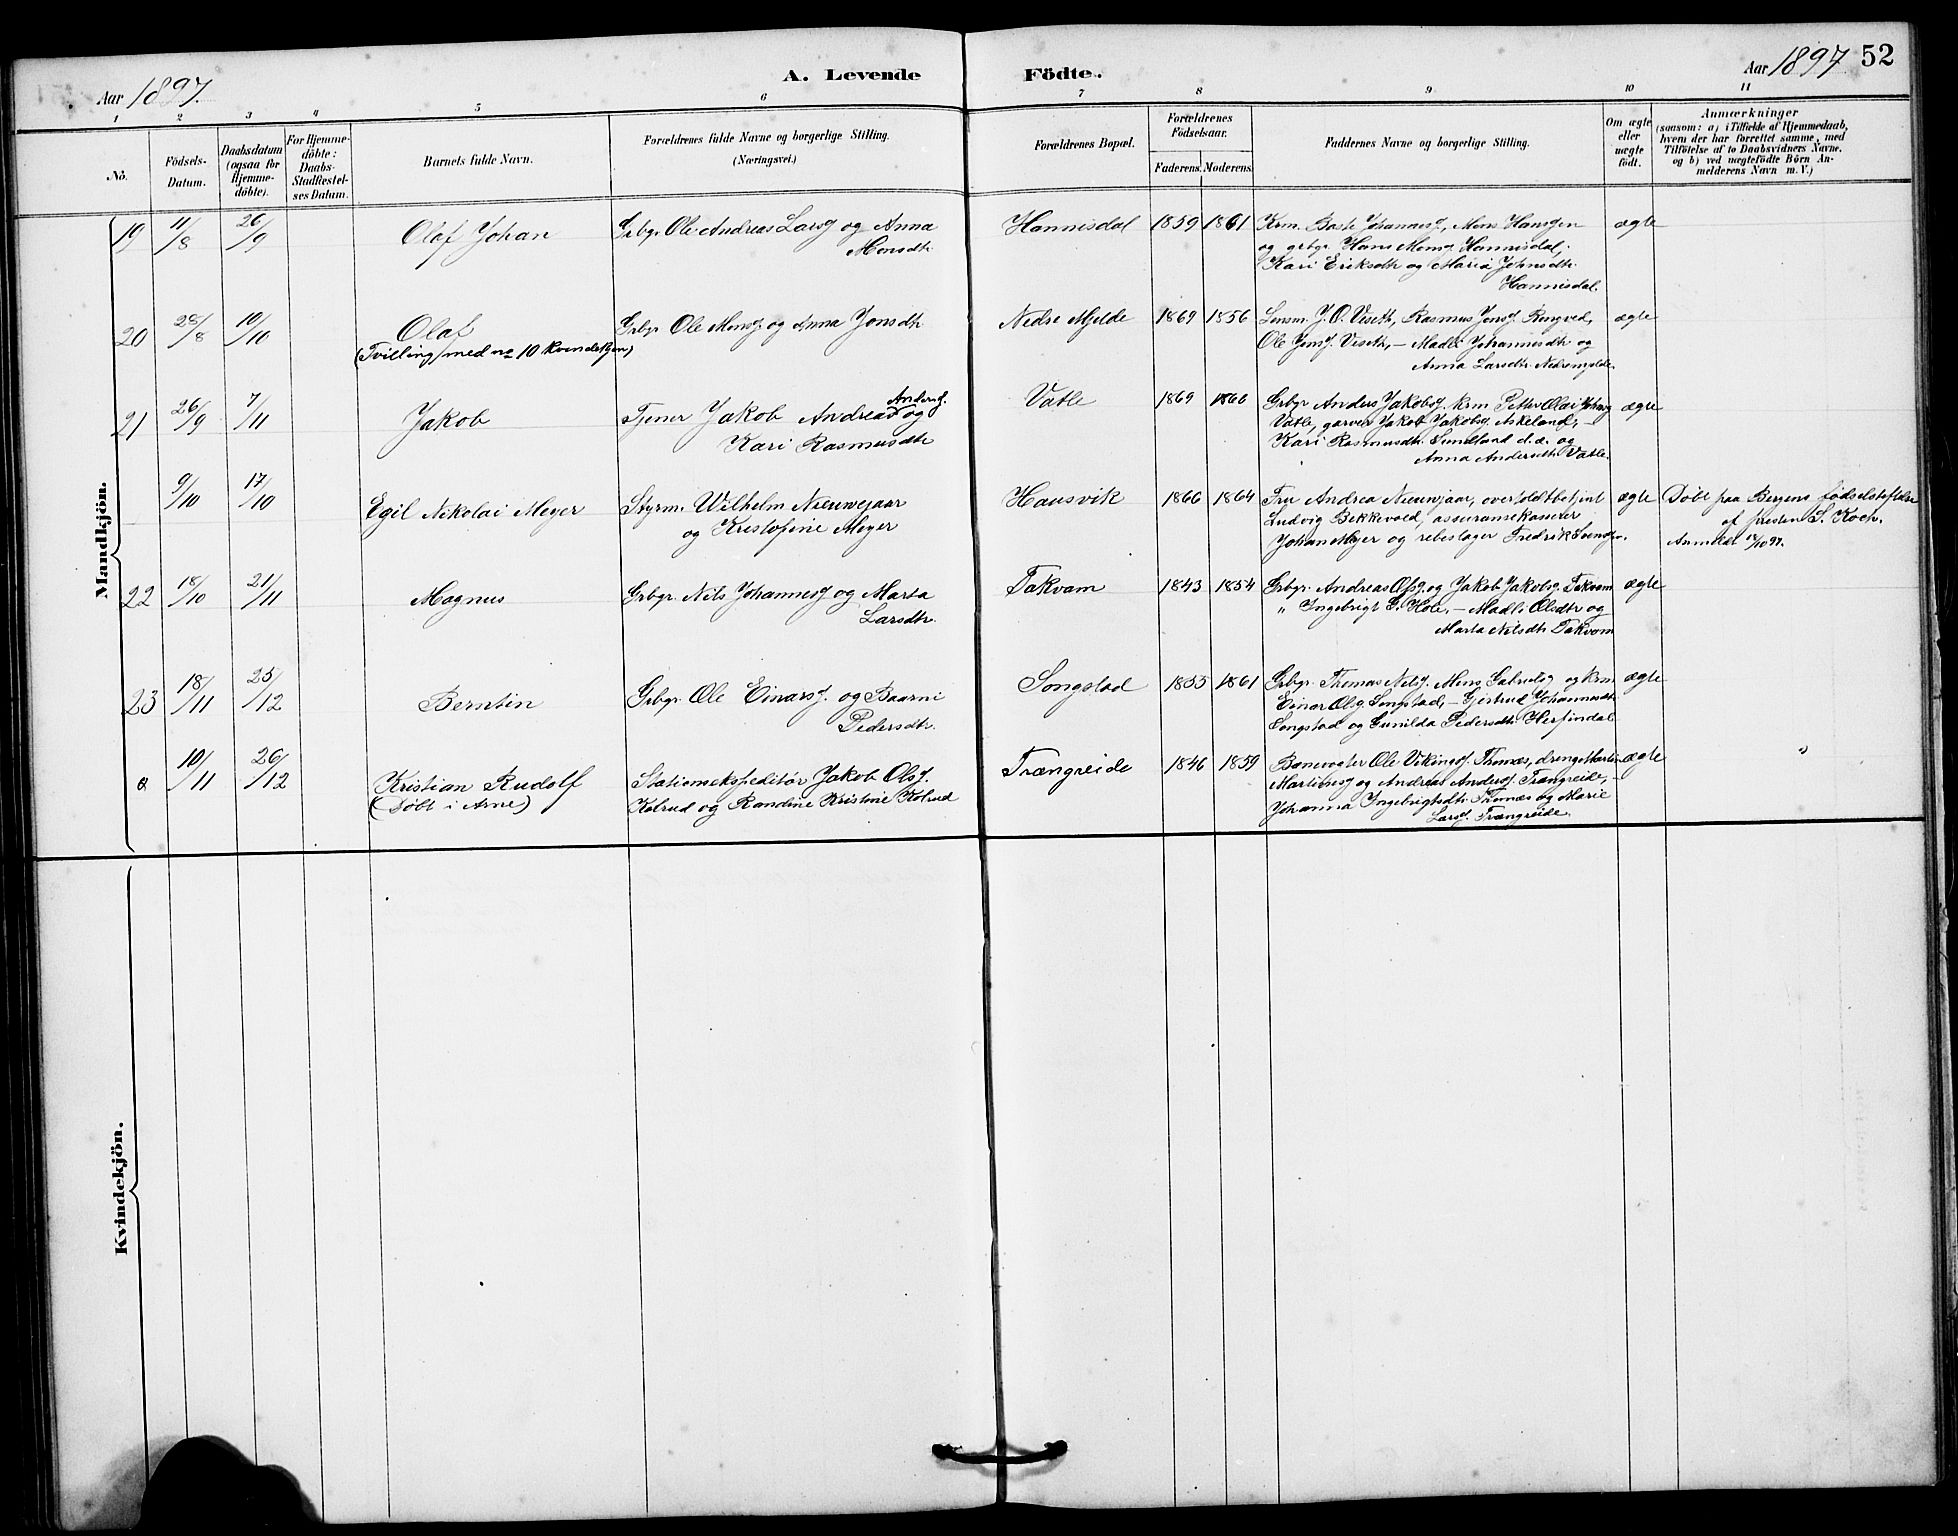 Aar 1897.
A. Levende
Födte.
Aar 1897
52
1 2 3 4 5 6 7 8 9 10 11
No.
Födsels-
Datum.
Daabsdatum
(ogsaa for
Hjemme-
döbte).
For Hjemme-
döbte:
Daabs-
Stadfæstel-
ses Datum.
Barnets fulde Navn.
Forældrenes fulde Navne og borgerlige Stilling.
(Næringsvei.)
Forældrenes Bopæl.
Forældrenes
Födselsaar.
Faderens. Moderens.
Faddernes Navne og borgerlige Stilling.
Om ægte
eller
uægte
födt.
Anmærkninger
(saasom: a) i Tilfælde af Hjemmedaab,
hvem der har forrettet samme, med
Tilföielse af to Daabsvidners Navne,
og b) ved uægtefödte Börn An-
melderens Navn m. V.)
Mandkjön.
19 11/8 26/9 Olaf Johan Grbgr. Ole Andreas Larsg og Anna
Monsdtr.
Hannisdal 1859 1861 Krm. Baste Johannesg, Mons Hansgen
og grbgr. Hans Monsg Hannisdal,
Kari Eriksdtr og Maria Johnsdtr.
Hannisdal.
ægte
20 28/8 10/10 Olaf
(Tvilling med no 10 kvindekjøn)
Grbgr. Ole Monsg og Anna Jonsdtr
Nedre Mjelde 1869 1856 Lensm. J. O. Viseth, Rasmus Jensg. Ringved,
Ole Jensg. Viseth, - Madli Johannesdtr og
Anna Larsdtr. Nedremjelde.
ægte
21 26/9 7/11 Jakob Tjener Jakob Andreas Andersg.
og
Kari Rasmusdtr
Vatle 1869 1866 Grbgr Anders Jakobsg, krm Petter Olai
Vatle, garver Jakob Jakobsg. Askeland, -
Kari Rasmusdtr. Sundland d.æ. og
Anna Andersdtr. Vatle.
ægte
9/10 17/10 Egil Nikolai Meyer Styrm. Wilhelm Nieuwejaar
og Kristofine Meyer
Hausvik 1866 1864 Fru Andrea Nieuwjaar, overtoldbetjent
Ludvig Bekkevold, assuransekasserer
Johan Meyer og rebslager Fredrik
ægte Døbt paa Bergens fødselstiftelse
af presten S. Koch.
Anmeldt
22 18/10 21/11 Magnus Grbgr. Nils Johannesg og Marta
Larsdtr.
Takvam 1843 1854 Grbgr. Andreas Olsg. og Jakob Jakobsg. Takvam
" Ingebrigt G. Hole, - Madli Olsdtr og
Marta Nilsdtr. Takvam
ægte
23 18/11 25/12 Berntin Grbgr. Ole Einarsg. og Baarni
Pedersdtr.
Songstad 1855 1861 Grbgr. Thomas Nilsg. Mons og krm
Einar Olsg. Songstad, - Gjertrud Johannesdtr.
Songstad og Gunilda Pedersdtr. Herfindal
ægte
a 10/11 26/12 Kristian Rudolf
(Døbt i Arne)
Stationsekspeditør Jakob Olsg.
Kolrud og Randine Kristine Kolrud
Trængreide 1846 1859 Banevogter Ole Vikingsg. Thomæs, dreng Martin
Martinusg og Andreas Andersg. Trængreide, -
Johanna Ingebrigtsdtr. Thomæs og Marie
Larsg. Trængreide.
ægte "
Kvindekjön.